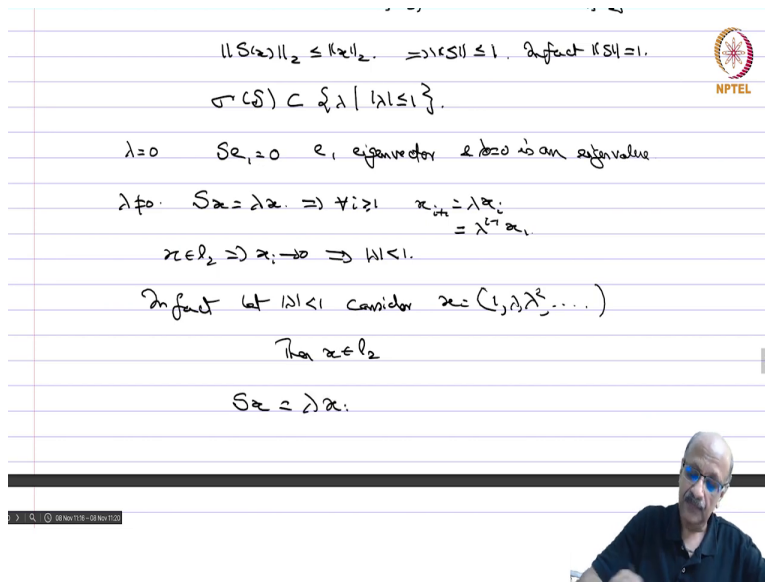 ||S(x)||₂ ≤ ||x||₂. ⇒ ||S|| ≤ 1. Infact ||S|| = 1.
NPTEL
σ(S) ⊂ {λ | |λ| ≤ 1}.
λ=0 Se₁=0 e₁ eigenvector & λ=0 is an eigenvalue
λ≠0. Sx = λx. ⇒ ∀i≥1 xᵢ₊₁ = λxᵢ
= λⁱ⁻¹ x₁.
x∈l₂ ⇒ xᵢ→0 ⇒ |λ|<1.
Infact let |λ|<1 consider x = (1, λ, λ², ....)
Then x∈l₂
Sx = λx.
08 Nov 11:16 - 08 Nov 11:20